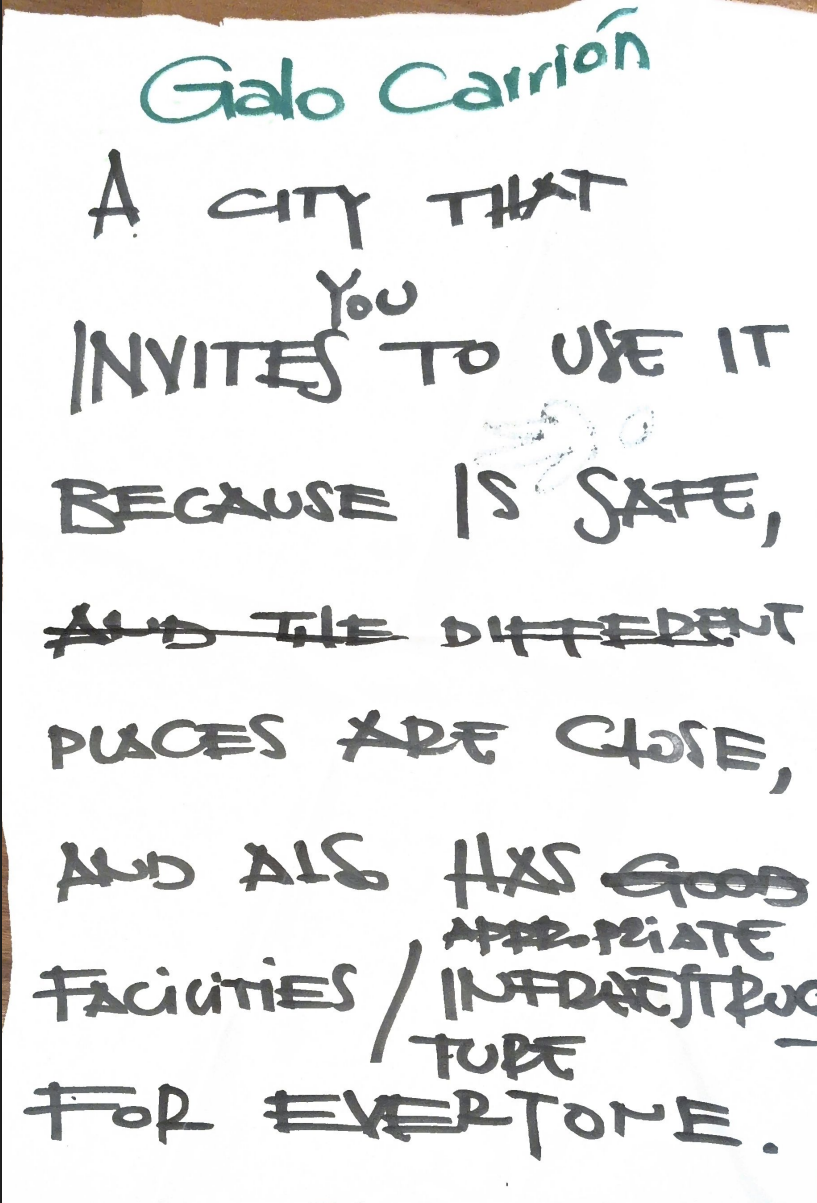 Galo Carrión
A CITY THAT
YOU
INVITES TO USE IT
BECAUSE IS SAFE,
AND THE DIFFERENT
PLACES ARE CLOSE,
AND ALSO HAS GOOD
APPROPRIATE
FACILITIES / INFRAESTRUC
TURE
FOR EVERYONE.